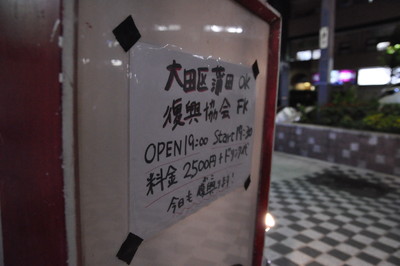 大田区蒲田 OK
復興協会 FK
OPEN19:00 Start19:30
料金 2500円+
今日も復興します!